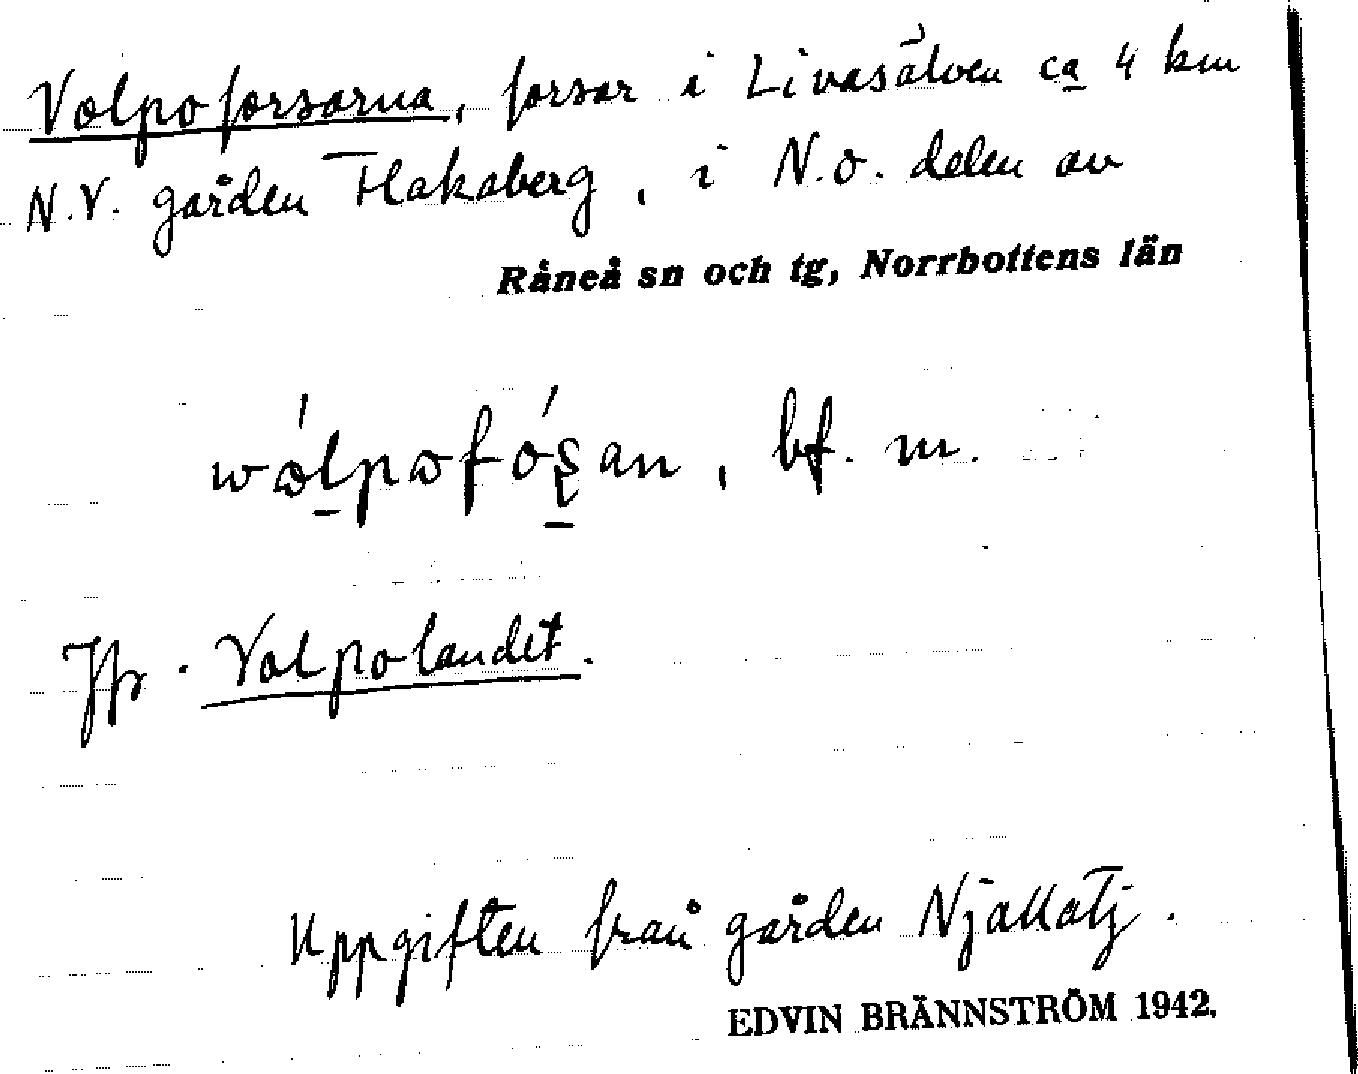 Valpoforsarna, forsar i Livasälven ca 4 km
N.V. gården Flakaberg, i N.O. delen av
Råneå sn och tg, Norrbottens län
bf. m.
Jfr. Valpolandet.
Uppgiften från gården Njallatj.
EDVIN BRÄNNSTRÖM 1942.